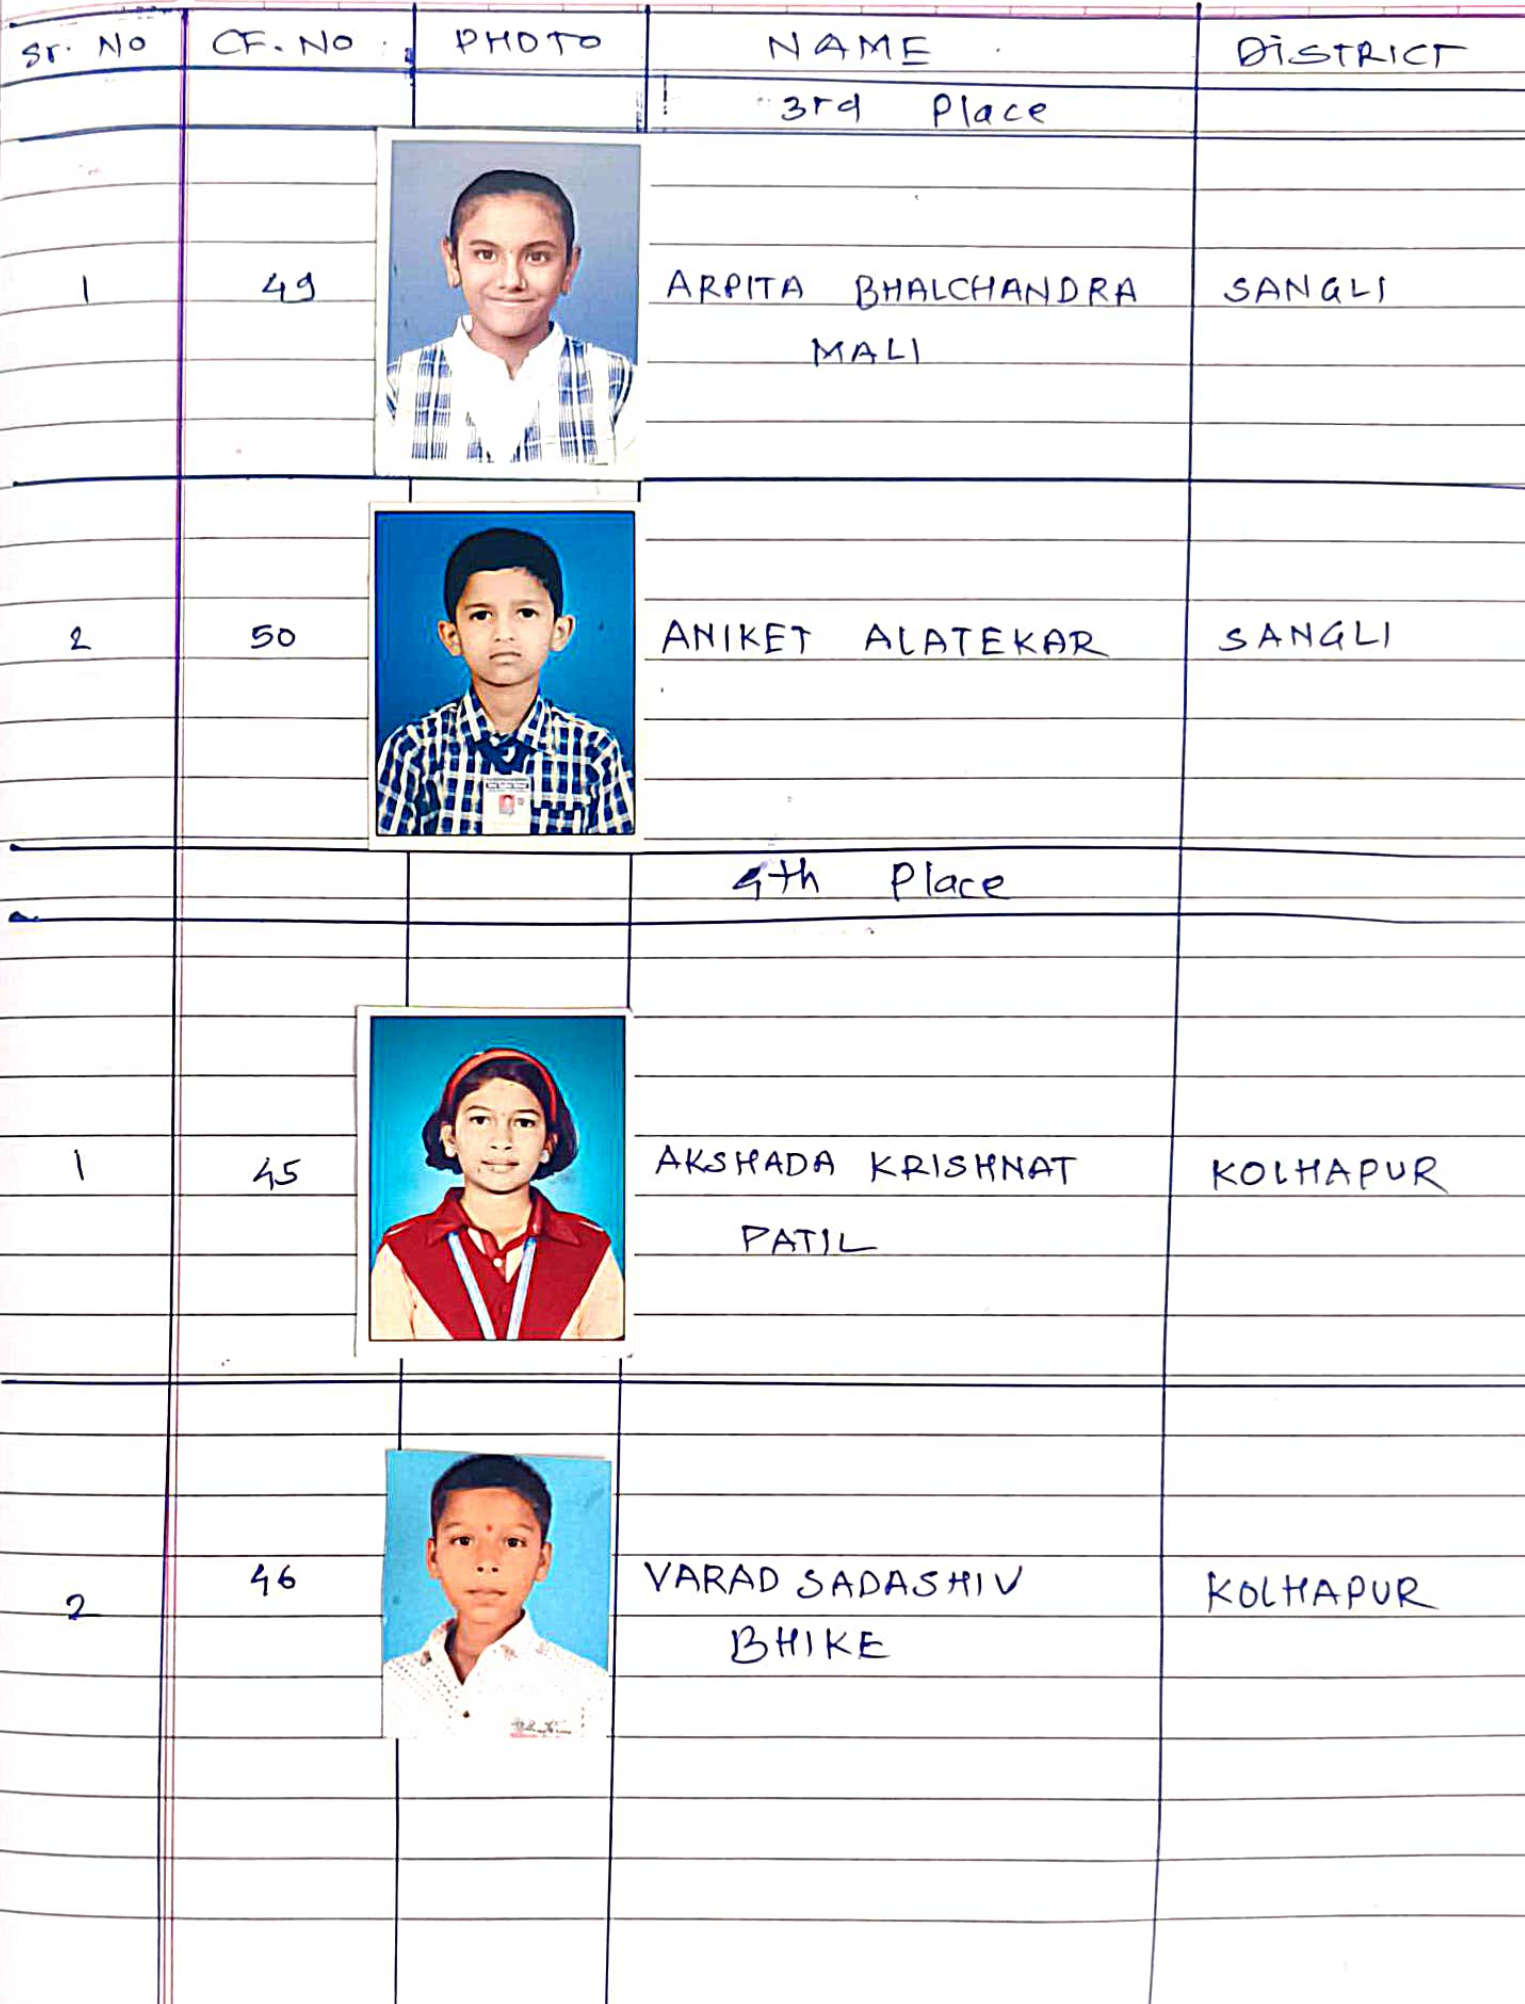 Sr. No CF. NO PHOTO NAME DiSTRICT
3rd Place
1 49 ARPITA BHALCHANDRA SANGLI
MALI
2 50 ANIKET ALATEKAR SANGLI
4th Place
1 45 AKSHADA KRISHNAT KOLHAPUR
PATIL
2 46 VARAD SADASHIV KOLHAPUR
BHIKE